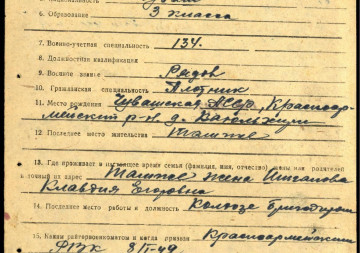 6. Образование 3 класса
7. Военно-учетная специальность 134.
8. Должностная квалификация
9. Военное звание Рядов
10. Гражданская специальность Плотник
11. Место рождения Чувашская АССР, Красноар-
мейский р-н, д.
12. Последнее место жительства Там же
13. Где проживает в настоящее время семья (фамилия, имя, отчество) жены или родителей
и точный их адрес Там же жена
Клавдия Егоровна
14. Последнее место работы и должность Колхоз Бригадиром
15. Каким райгорвоенкоматом и когда призван Красноармейским
РВК 8/II-49